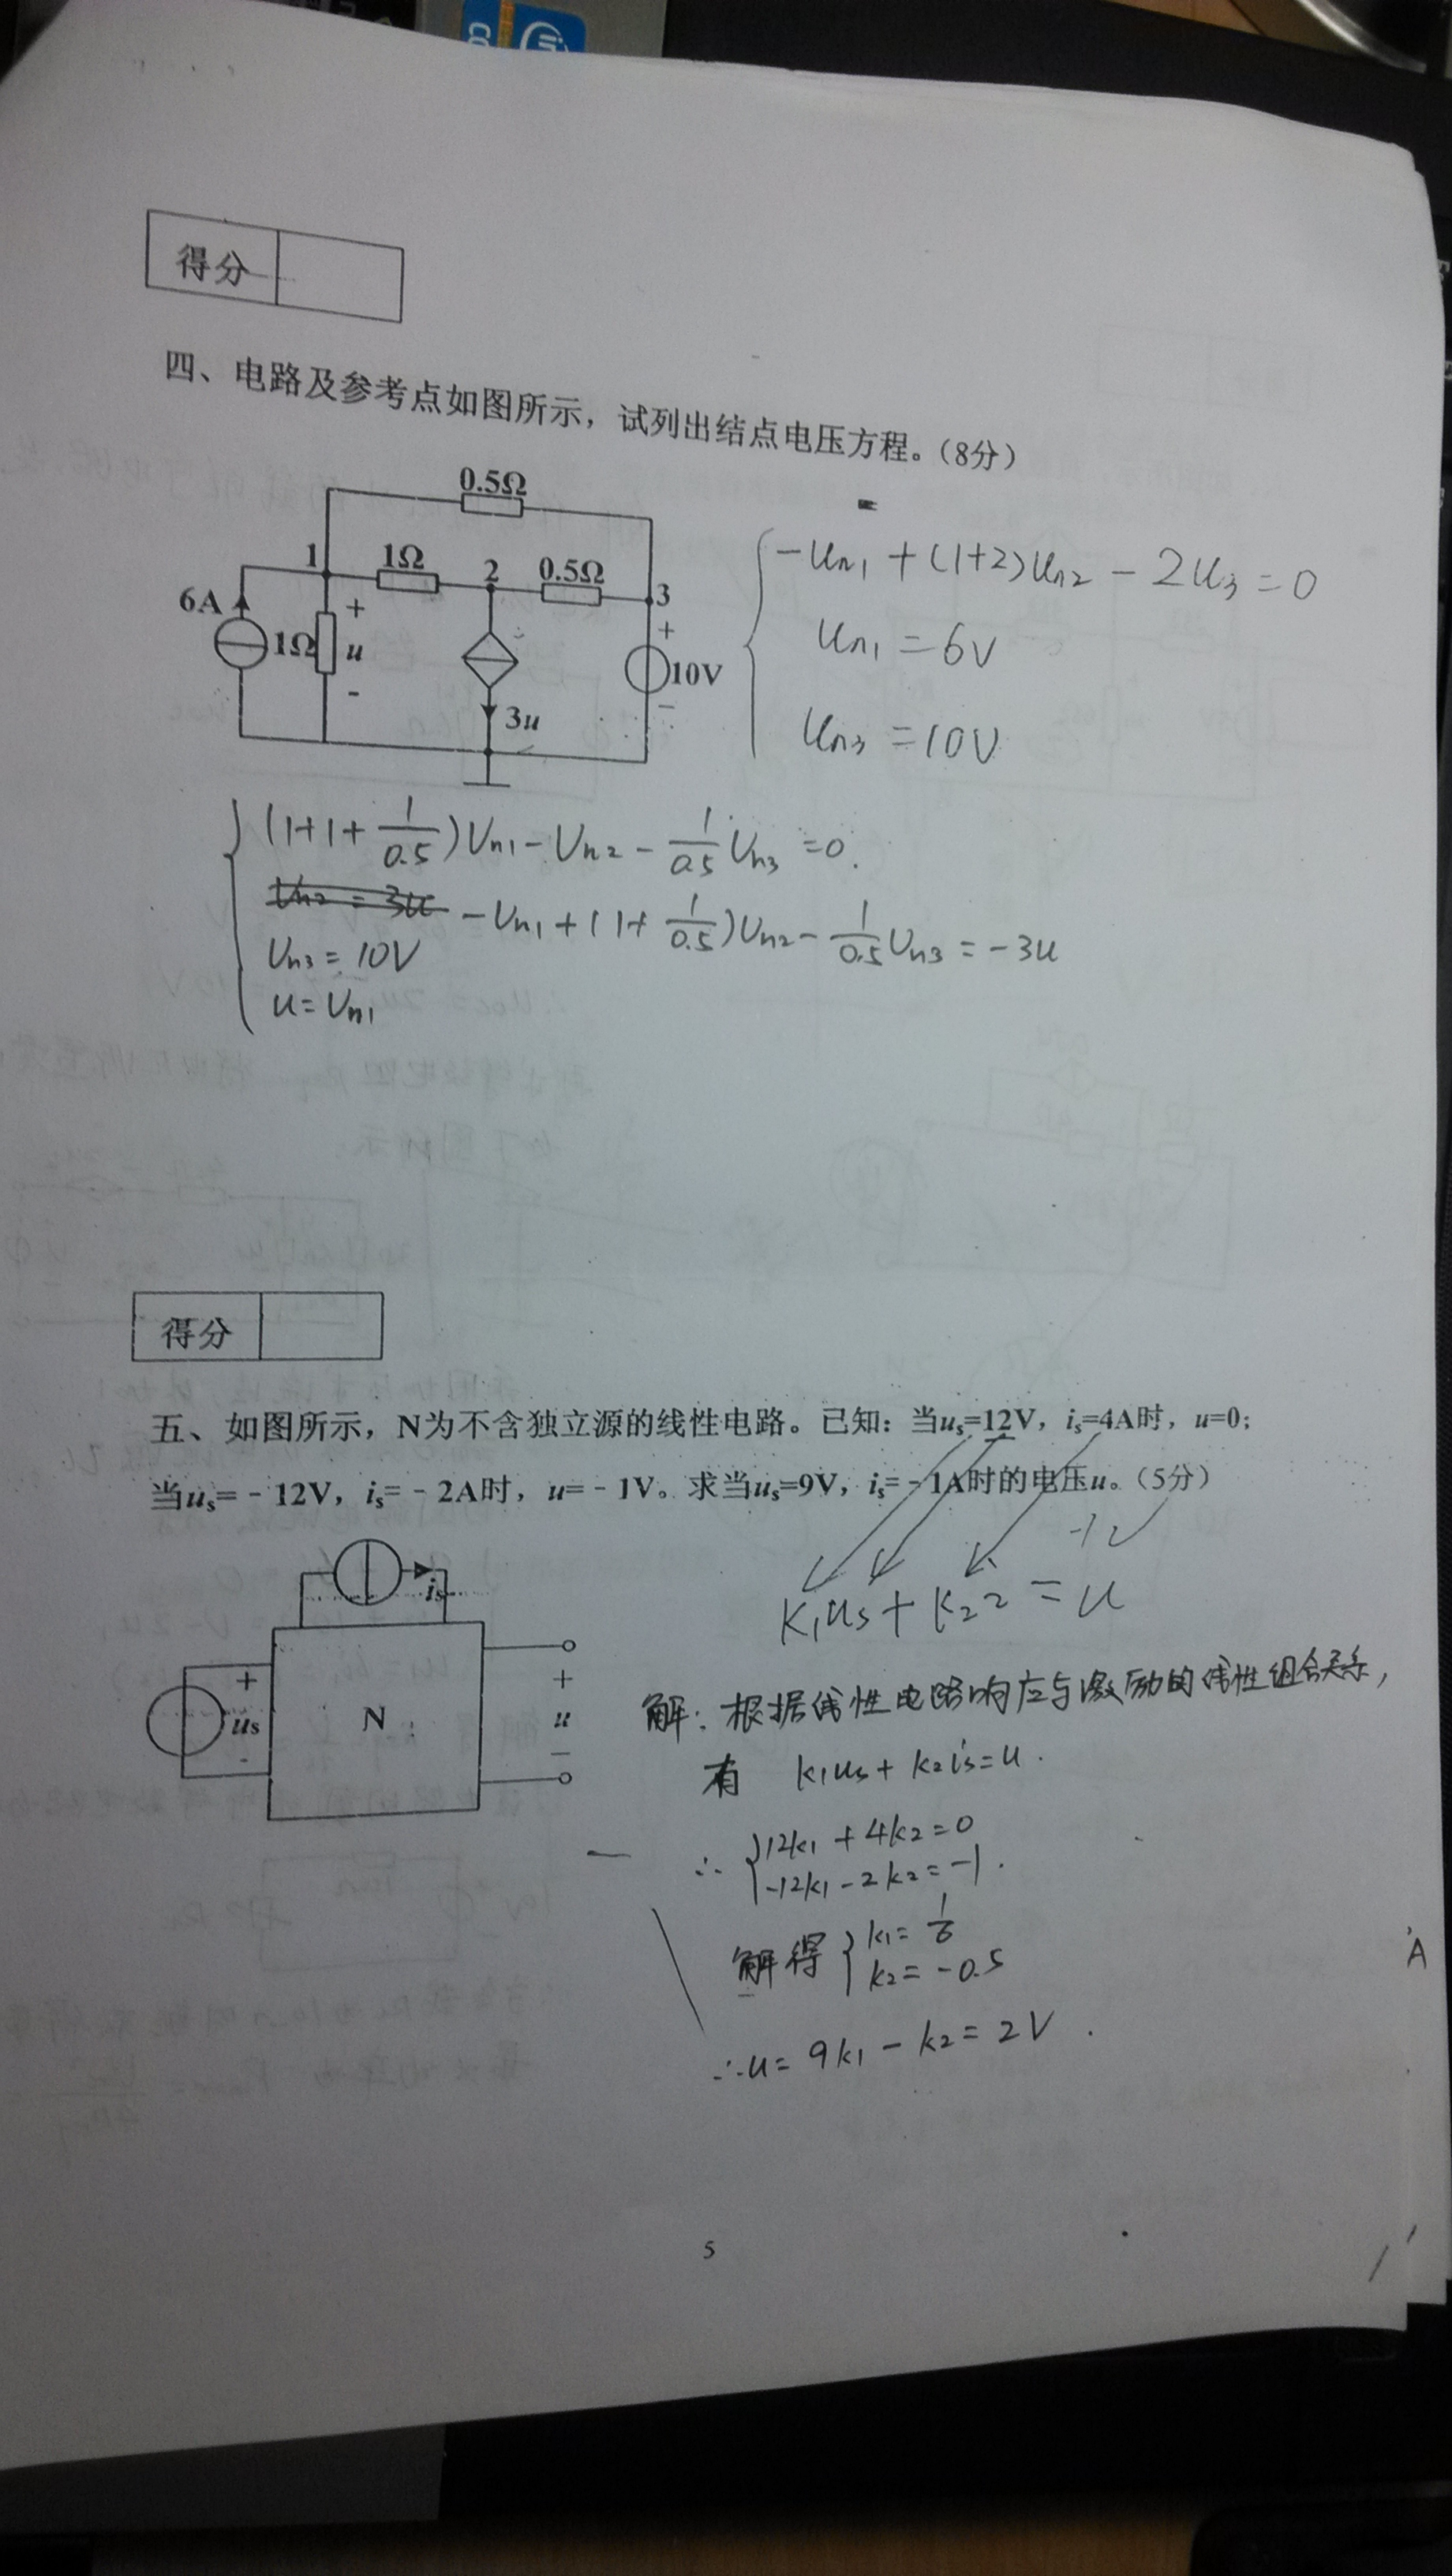 得分
四、电路及参考点如图所示，试列出结点电压方程。（8分）
0.5Ω
1 1Ω 2 0.5Ω 3
6A 1Ω + u - 3u + 10V -
-Un1 + (1+2)Un2 - 2U3 = 0
Un1 = 6V
Un3 = 10V
(1+1+1/0.5)Un1 - Un2 - 1/0.5 Un3 = 0.
Un2 = 3u -Un1 + (1+1/0.5)Un2 - 1/0.5 Un3 = -3u
Un3 = 10V
u = Un1
得分
五、如图所示，N为不含独立源的线性电路。已知：当us=12V，is=4A时，u=0；
当us=－12V，is=－2A时，u=－1V。求当us=9V，is=－1A时的电压u。（5分）
is
+ us - N + u -
K1us + K22 = u
解：根据线性电路响应与激励的线性组合关系，
有 k1us + k2is = u.
∴ 12k1 + 4k2 = 0
-12k1 - 2k2 = -1.
解得 k1 = 1/6
k2 = -0.5
∴u = 9k1 - k2 = 2V.
A
5